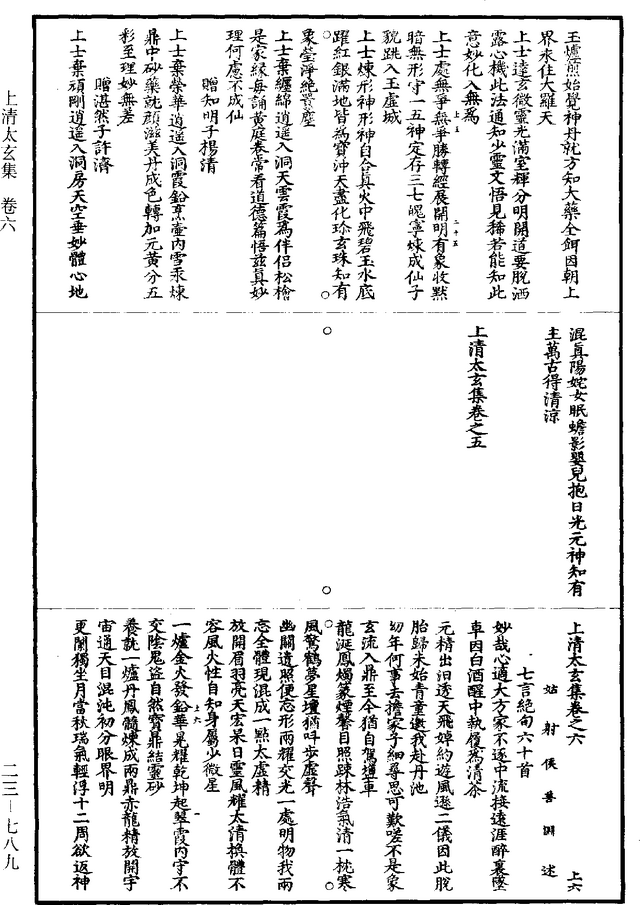 上清太玄集 卷六
二三—七八九
玉爐前始覺神丹就方知大藥全餌因朝上
界永住大羅天
上士達玄微靈光滿室輝分明開道要脫洒
露心機此法通知少靈文悟見稀若能知此
意妙化入無為
上士處無爭無爭勝轉經展開明有象收默
暗無形守一五神定存三七魄寧煉成仙子
貌跳入玉虛城
上士煉形神形神自合真火中飛碧玉水底
躍紅銀滿地皆為寶沖天盡化珍玄珠知有
象瑩淨絕囂塵
上士棄纏綿逍遙入洞天雲霞為伴侶松檜
是家緣每誦黃庭卷常看道德篇悟茲真妙
理何慮不成仙
贈知明子楊清
上士棄榮華逍遙入洞霞鉛烹壺內雪汞煉
鼎中砂藥就顏滋美丹成色轉加元黃分五
彩至理妙無差
贈湛然子許濟
上士棄頑剛逍遙入洞房天空垂妙體心地
混真陽姹女眠蟾影嬰兒抱日光元神知有
主萬古得清涼
上清太玄集卷之五
上清太玄集卷之六
上六
姑射侯善淵述
七言絕句六十首
妙哉心適大方家不逐中流接遠涯醉裏墜
車因白酒醒中執履為清茶
元精出汨透天飛婥約遊風遜二儀因此脫
胎歸未始青童邀我赴丹池
幼年何事去擔家子細尋思可歎嗟不是象
玄流入鼎至今猶自駕塵車
龍涎鳳燭篆煙馨目照踈林浩氣清一枕寒
風驚鶴夢星壇猶叫步虛聲
幽關遺照便忘形兩耀交光一處明物我兩
忘全體現混成一點太虛精
放開眉羽亮天宏杲日靈風耀太清換體不
容風火性自知身屬少微星
一爐金火發鉛華晃耀乾坤起翠霞內守不
交陰鬼盜自然寶鼎結靈砂
養就一爐丹鳳髓煉成兩鼎赤龍精放開宇
宙通天目混沌初分眼界明
更闌獨坐月當秋瑞氣輕浮十二周欲返神